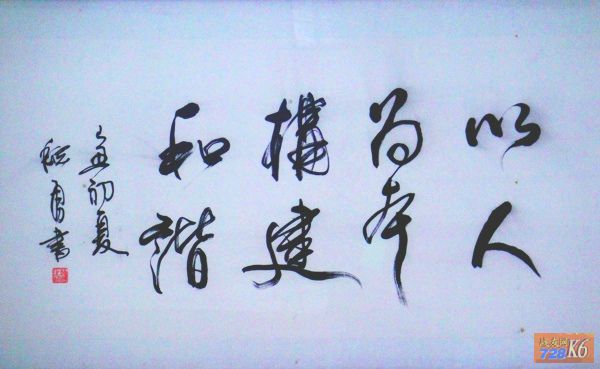 以人
为本
構建
和諧
初夏
書
728K6